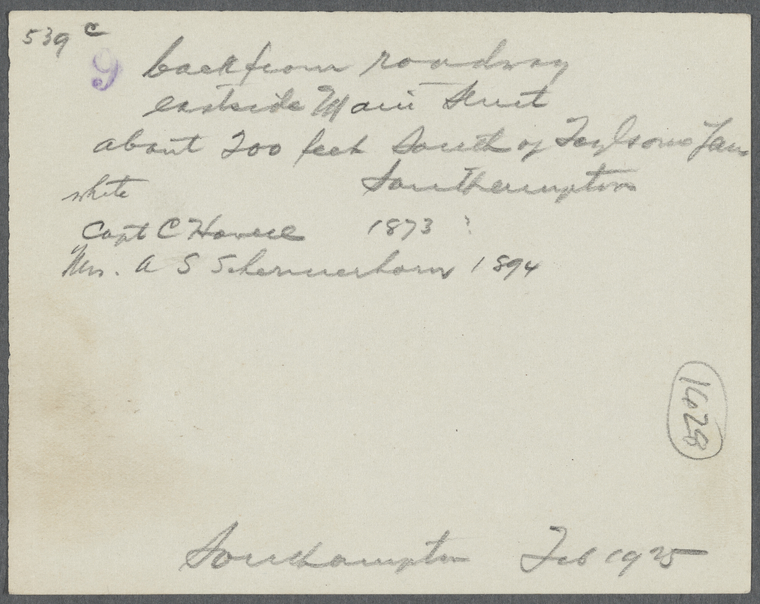 539 c
9 back from roadway
eastside Main Street
about 200 feet South of Lane
white Southampton
Capt C Howell 1873 ?
Mrs. A S Schermerhorn 1894
1628
Southampton Feb 1925